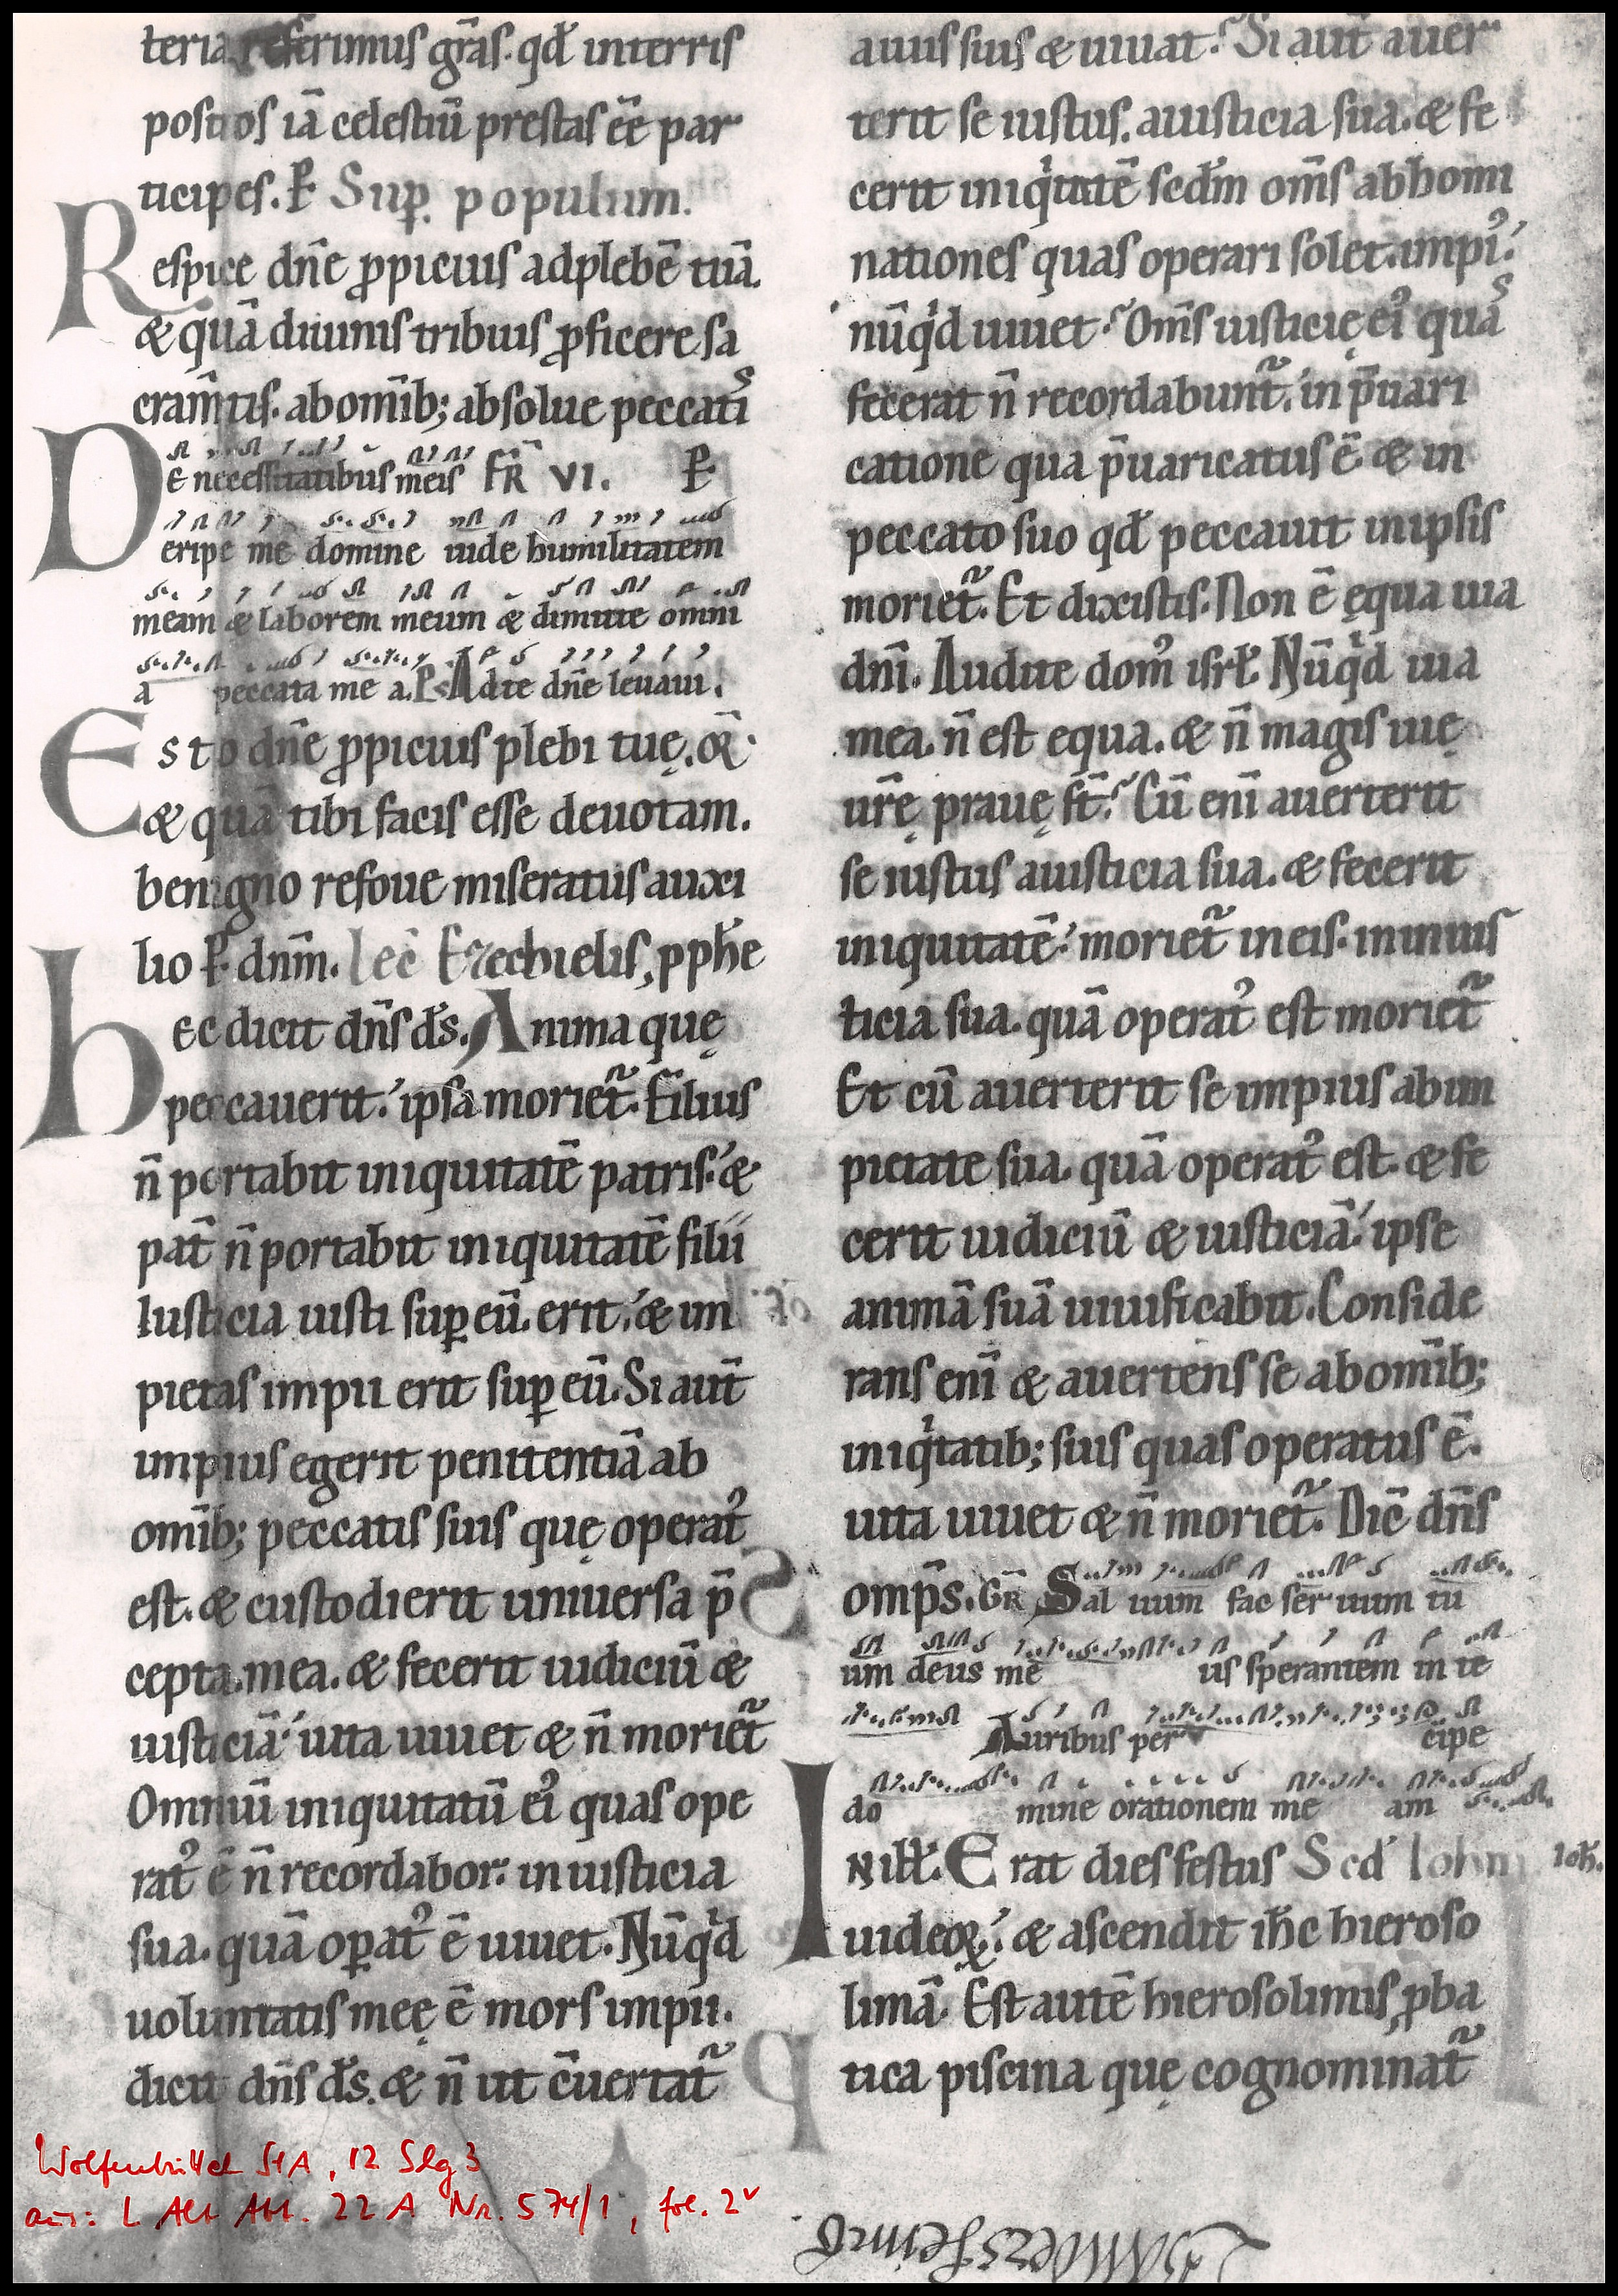 teria referimus gr̄as. qđ interris
positos iā celestiū prestas eē par
ticipes. P̄ Sup̱ populum.
Respice dn̄e ꝓpicius adplebē tuā.
& quā diuinis tribuis ꝓficere sa
cram̄tis. abom̄ib; absolue peccatis
De necessitatibus meis FR̄ VI. P̄
eripe me domine uide humilitatem
meam & laborem meum & dimitte omni
a peccata me a. Ps Adte dn̄e leuaui.
Esto dn̄e ꝓpicius plebi tuę. q̄
& quā tibi facis esse deuotam.
benigno refoue miseratus auxi
lio P̄ dn̄m. lec̄ Ezechielis, ꝓph̄e
hec dicit dn̄s d̄s. Anima quę
peccauerit. ipsa moriet̃. Filius
n̄ portabit iniquitatē patris. &
pat̄ n̄ portabit iniquitatē filii
Iusticia iusti sup̱ eū. erit. & im
pietas impii erit sup̱ eū. Si aut̄
impius egerit penitentiā ab
om̄ib; peccatis suis quę operat᾽
est. & custodierit uniuersa p̄
cepta. mea. & fecerit iudiciū &
iusticiā uita uiuet & n̄ moriet̃
Omniū iniquitatū ei᾽ quas ope
rat᾽ ē n̄ recordabor. in iusticia
sua. quā op̱at᾽ ē uiuet. Nūqd
uoluntatis meę ē mors impii.
dicit dn̄s d̄s. & n̄ ut c̄uertat̃
auiis suis & uiuat. Si aut̄ auer
terit se iustus. aiusticia sua. & fe
cerit iniqͥtatē scd̄m om̄s abhomi
nationes quas operari solet. impi᾽
nūqͥd uiuet. Om̄s iusticię ei᾽ quas
fecerat n̄ recordabunt̃. in p̄uari
catione qua p̄uaricatus ē. & in
peccato suo qđ peccauit inipsis
moriet̃. Et dixistis. Non ē ęqua uia
dn̄i. Audite dom᾽ isrł. Nūqͥd uia
mea. n̄ est equa. & n̄ magis uię
ur̄ę prauę st̄. Cū enī auerterit
se iustus aiusticia sua. & fecerit
iniquitatē. moriet̃ ineis. in inius
ticia sua. quā operat᾽ est moriet̃
Et cū auerterit se impius abim
pietate sua. quā operat᾽ est. & fe
cerit iudiciū & iusticiā. ipse
animā suā uiuificabit. Conside
rans enī & auertens se abom̄ib;
iniqͥtatib; suis quas operatus ē.
uita uiuet & n̄ moriet̃. Dic̄ dn̄s
omp̄s. GR̄ Sal uum fac ser uum tu
um deus me us sperantem in te
Auribus per cipe
do mine orationem me am
IN ill̄. Erat dies festus Scd̄ Iohn Ioh̄.
iudeoꝝ. & ascendit ih̄c hieroso
limā. Est autē hierosolimis, ꝓba
tica piscina quę cognominat̃
Wolfenbüttel StA, 12 Slg 3
aus: L Alt Abt. 22 A Nr. 574/1, fol. 2v